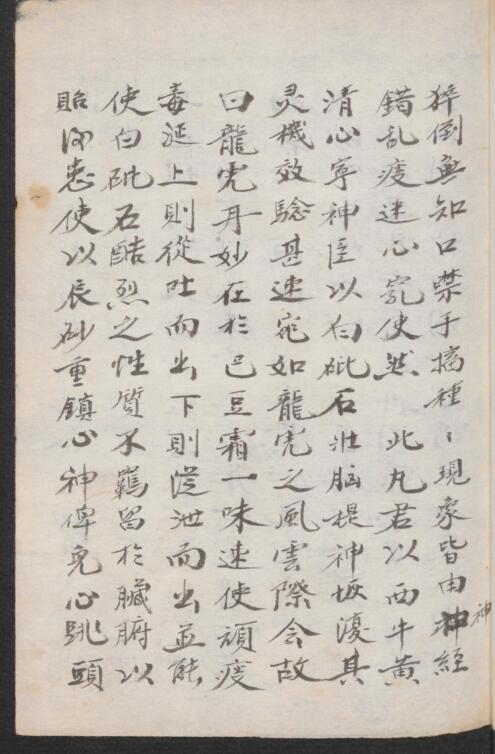 猝倒無知口噤手搐種〻現象皆由神經
神
錯乱痰迷心竅使然　此丸君以西牛黄
清心寧神臣以白砒石壯脑提神恢復其
灵機效騐甚速宛如龍虎之風雲際会故
曰龍虎丹妙在於巴豆霜一味速使頑痰
毒延上則從吐而出下則從泄而出並能
使白砒石酷烈之性質不羈留於臟腑以
貽後患使以辰砂重鎮心神俾免心跳頭